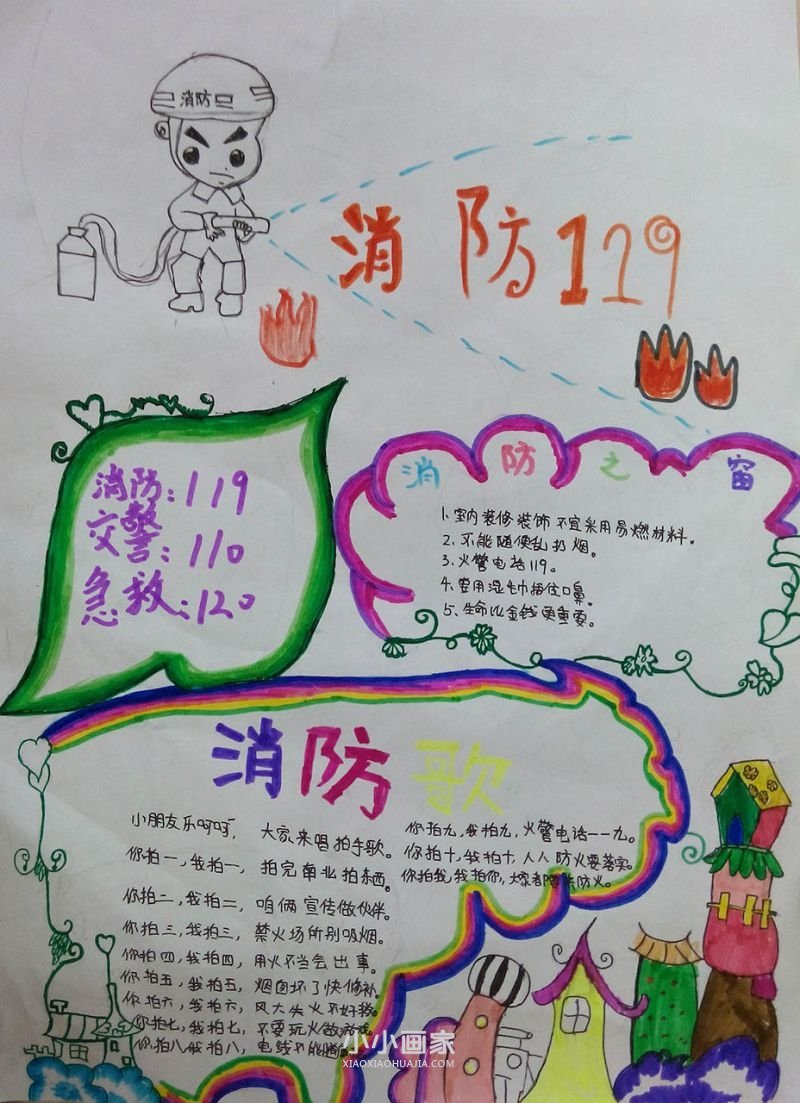 消防
消防119
消防:119
交警:110
急救:120
消防之窗
1.室内装修装饰不宜采用易燃材料。
2.不能随便乱扔烟。
3.火警电话119。
4.要用湿毛巾捂住口鼻。
5.生命比金钱更重要。
消防歌
小朋友乐呵呵, 大家来唱拍手歌。
你拍一,我拍一, 拍完南北拍东西。
你拍二,我拍二, 咱俩宣传做伙伴。
你拍三,我拍三, 禁火场所别吸烟。
你拍四,我拍四, 用火不当会出事。
你拍五,我拍五, 烟囱坏了快修补。
你拍六,我拍六, 风大失火不好救。
你拍七,我拍七, 不要玩火做游戏。
你拍八我拍八, 电线不能
你拍九,我拍九,火警电话一一九。
你拍十,我拍十,人人防火要落实。
你拍我,我拍你,大家都 防火。
小小画家
XIAOXIAOHUAJIA.COM